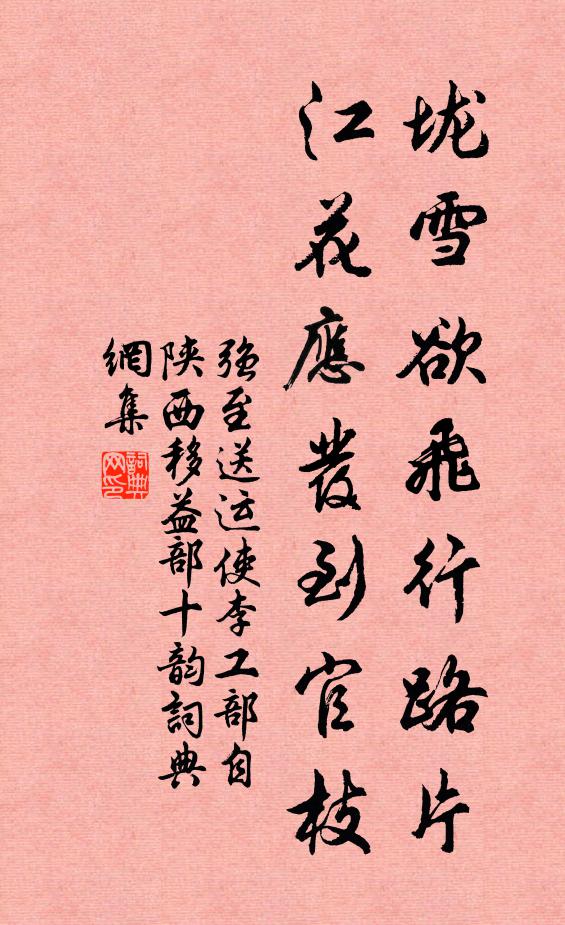 垅雪欲飛行路片
江花應發到官枝
強至送运使李工部自
陕西移益部十韵詞典
網集
詞典网印